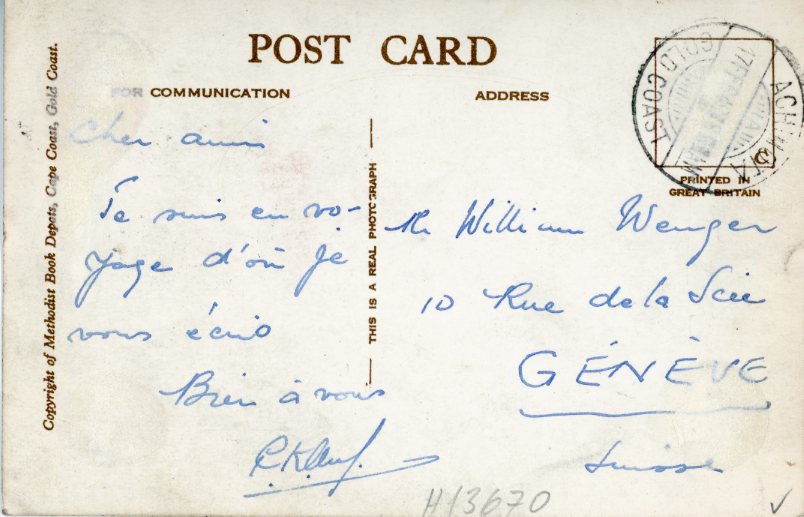 POST CARD
FOR COMMUNICATION
ADDRESS
Copyright of Methodist Book Depots, Cape Coast, Gold Coast.
THIS IS A REAL PHOTOGRAPH
PRINTED IN
GREAT BRITAIN
ACHIMOTA
GOLD COAST
Cher ami
Je suis en vo-
yage d'où je
vous écris
Bien à vous
Mr William Wenger
10 Rue de la Scie
GÉNÈVE
Suisse
H13670